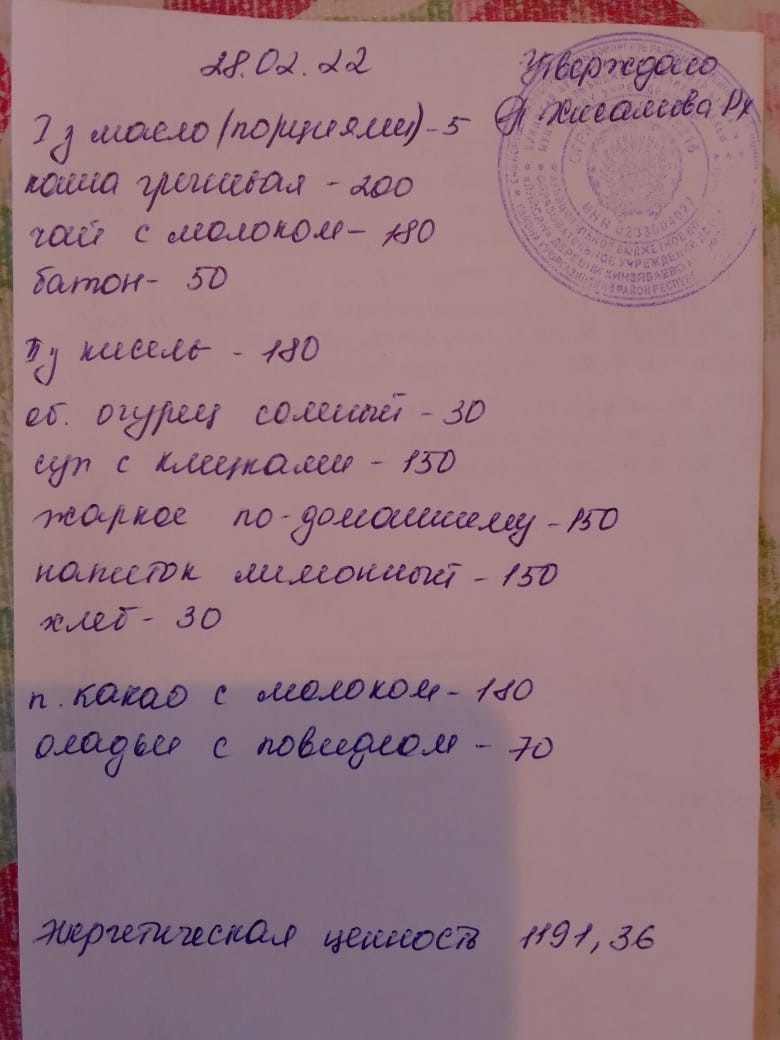 28.02.22
Утверждаю
Хисамова РХ
I з масло (порциями) - 5
каша гречневая - 200
чай с молоком - 180
батон - 50
II з кисель - 180
об. огурец соленый - 30
суп с клецками - 150
жаркое по-домашнему - 150
напиток лимонный - 150
хлеб - 30
п. какао с молоком - 180
оладьи с повидлом - 70
Энергетическая ценность 1191,36